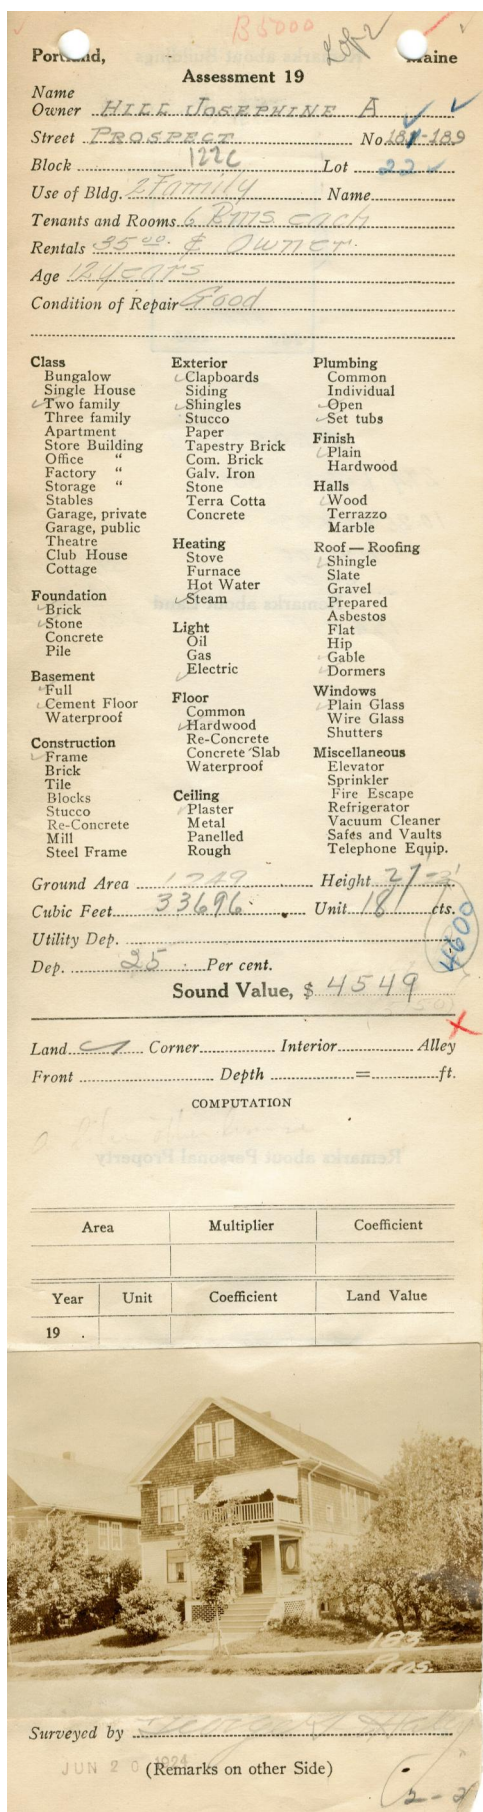 B5000
Portland, Maine
Assessment 19
Name
Owner HILL JOSEPHINE A
Street PROSPECT No. 181-189
Block 122C Lot 22
Use of Bldg. 2 Family Name
Tenants and Rooms 6 Rms. each
Rentals 35 00. & Owner.
Age 12 years
Condition of Repair Good
Class
Bungalow
Single House
Two family
Three family
Apartment
Store Building
Office "
Factory "
Storage "
Stables
Garage, private
Garage, public
Theatre
Club House
Cottage
Foundation
Brick
Stone
Concrete
Pile
Basement
Full
Cement Floor
Waterproof
Construction
Frame
Brick
Tile
Blocks
Stucco
Re-Concrete
Mill
Steel Frame
Exterior
Clapboards
Siding
Shingles
Stucco
Paper
Tapestry Brick
Com. Brick
Galv. Iron
Stone
Terra Cotta
Concrete
Heating
Stove
Furnace
Hot Water
Steam
Light
Oil
Gas
Electric
Floor
Common
Hardwood
Re-Concrete
Concrete Slab
Waterproof
Ceiling
Plaster
Metal
Panelled
Rough
Plumbing
Common
Individual
Open
Set tubs
Finish
Plain
Hardwood
Halls
Wood
Terrazzo
Marble
Roof — Roofing
Shingle
Slate
Gravel
Prepared
Asbestos
Flat
Hip
Gable
Dormers
Windows
Plain Glass
Wire Glass
Shutters
Miscellaneous
Elevator
Sprinkler
Fire Escape
Refrigerator
Vacuum Cleaner
Safes and Vaults
Telephone Equip.
Ground Area 1249 Height 27
Cubic Feet 33696 Unit 18 cts.
4600
Utility Dep.
Dep. 25 Per cent.
Sound Value, $ 4549
Land Corner Interior Alley
Front Depth = ft.
COMPUTATION
Area Multiplier Coefficient
Year Unit Coefficient Land Value
19 .
183
Pros.
Surveyed by
JUN 20 1924
(Remarks on other Side)